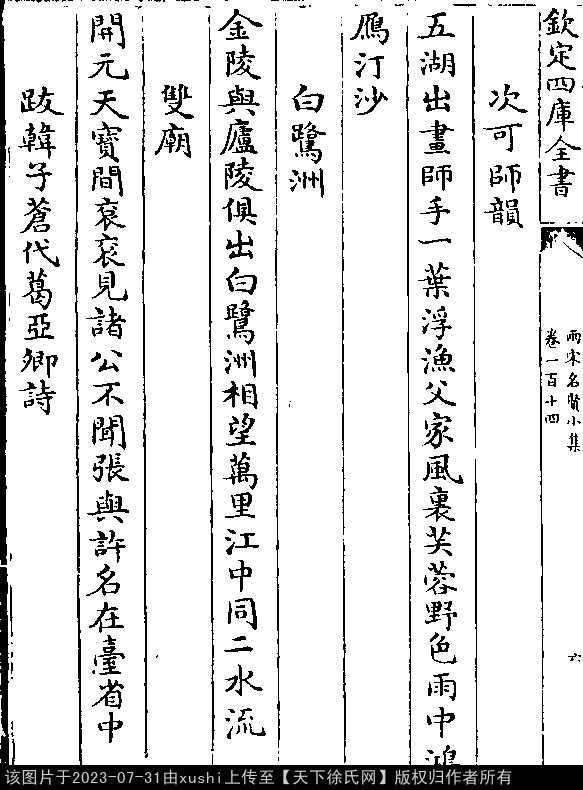 欽定四庫全書
兩宋名賢小集
卷一百十四
六
次可師韻
五湖出畫師手一葉浮漁父家風裏芙蓉野色雨中鴻
鴈汀沙
白鷺洲
金陵與廬陵俱出白鷺洲相望萬里江中同二水流
雙廟
開元天寶間袞袞見諸公不聞張與許名在臺省中
跋韓子蒼代葛亞卿詩
该图片于2023-07-31由xushi上传至【天下徐氏网】版权归作者所有